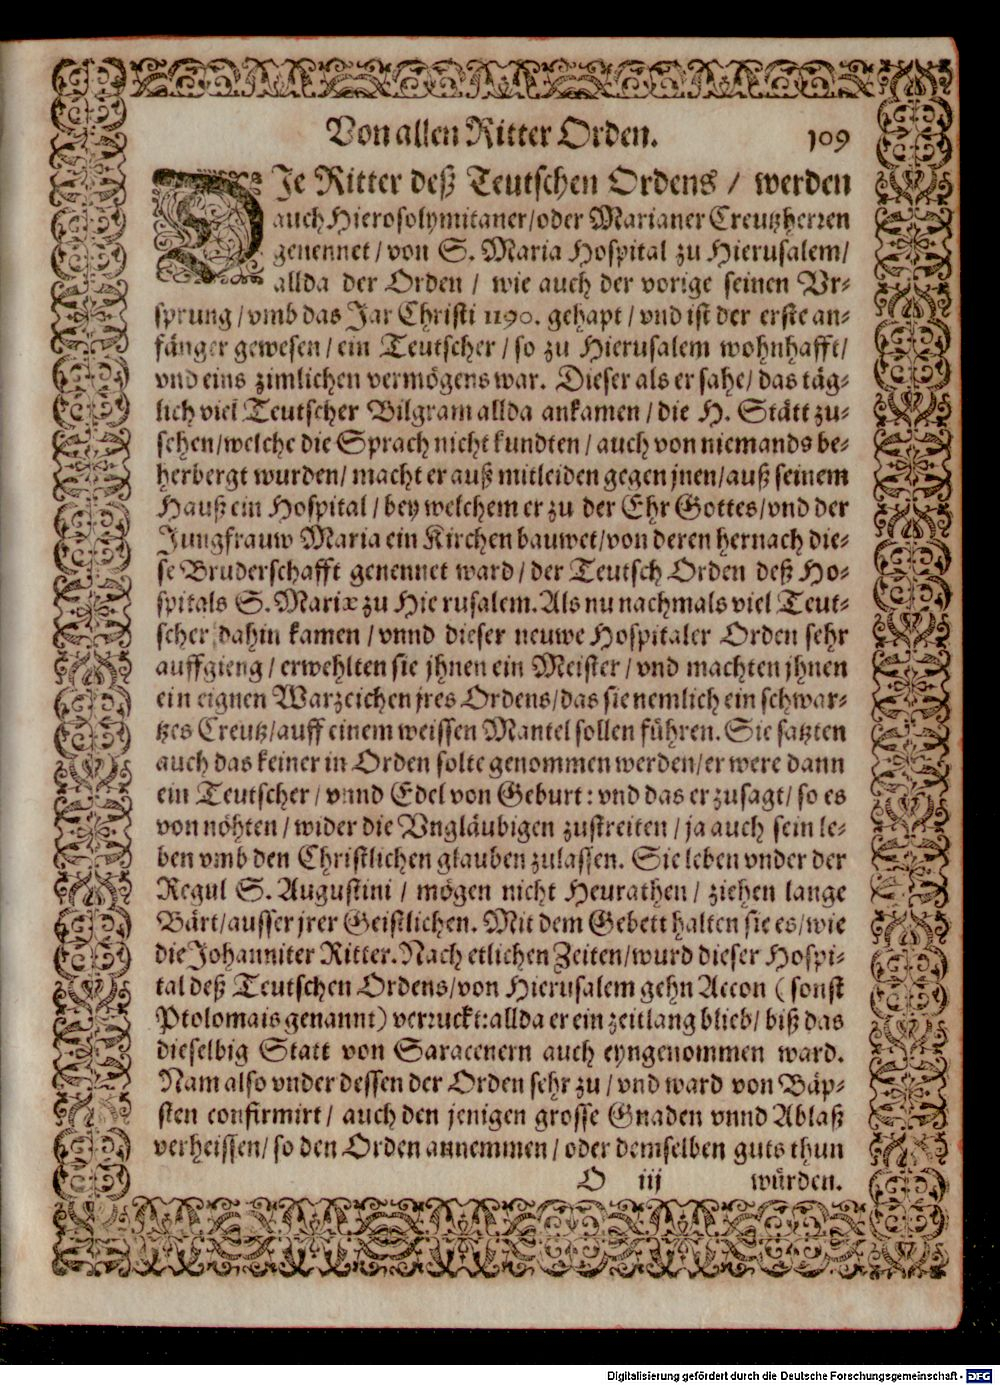 Von allen Ritter Orden. 109
DIe Ritter deß Teutschen Ordens / werden
auch Hierosolymitaner/oder Marianer Creutzherren
genennet / von S. Maria Hospital zu Hierusalem/
allda der Orden / wie auch der vorige seinen Vr-
sprung / vmb das Jar Christi 1190. gehapt / vnd ist der erste an-
fänger gewesen / ein Teutscher / so zu Hierusalem wohnhafft/
vnd eins zimlichen vermögens war. Dieser als er sahe/ das täg-
lich viel Teutscher Bilgram allda ankamen / die H. Stätt zu-
sehen/welche die Sprach nicht kundten / auch von niemands be-
herbergt wurden/ macht er auß mitleiden gegen jnen/auß seinem
Hauß ein Hospital / bey welchem er zu der Ehr Gottes/vnd der
Jungfrauw Maria ein Kirchen bauwet/von deren hernach die-
se Bruderschafft genennet ward / der Teutsch Orden deß Ho-
spitals S. Mariæ zu Hie rusalem. Als nu nachmals viel Teut-
scher dahin kamen / vnnd dieser neuwe Hospitaler Orden sehr
auffgieng / erwehlten sie jhnen ein Meister / vnd machten jhnen
ein eignen Warzeichen jres Ordens/das sie nemlich ein schwar-
tzes Creutz/auff einem weissen Mantel sollen führen. Sie satzten
auch das keiner in Orden solte genommen werden/er were dann
ein Teutscher / vnnd Edel von Geburt: vnd das er zusagt/ so es
von nöhten / wider die Vngläubigen zustreiten / ja auch sein le-
ben vmb den Christlichen glauben zulassen. Sie leben vnder der
Regul S. Augustini / mögen nicht Heurathen / ziehen lange
Bärt/ausser jrer Geistlichen. Mit dem Gebett halten sie es/wie
die Johanniter Ritter. Nach etlichen Zeiten/wurd dieser Hospi-
tal deß Teutschen Ordens/von Hierusalem gehn Accon (sonst
Ptolomais genannt) verruckt: allda er ein zeitlang blieb/ biß das
dieselbig Statt von Saracenern auch eyngenommen ward.
Nam also vnder dessen der Orden sehr zu / vnd ward von Bäp-
sten confirmirt / auch den jenigen grosse Gnaden vnnd Ablaß
verheissen/ so den Orden annemmen / oder demselben guts thun
O iij würden.
Digitalisierung gefördert durch die Deutsche Forschungsgemeinschaft - DFG